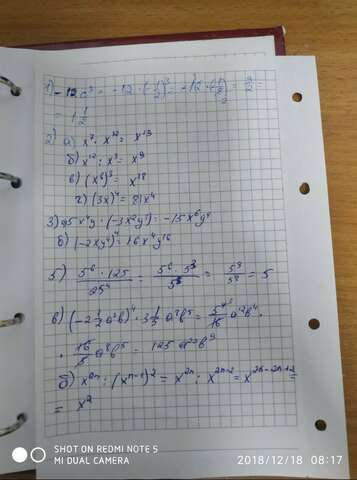 1) -12a³ = -12 · (-1/2)³ = -12 · (-1/8) = 3/2 =
= 1 1/2
2) а) x⁷ · x¹² = x¹⁹
б) x¹² : x³ = x⁹
в) (x⁶)³ = x¹⁸
г) (3x)⁴ = 81x⁴
3) а) 5x⁴y · (-3x²y³) = -15x⁶y⁴
б) (-2xy⁴)⁴ = 16x⁴y¹⁶
5) 5⁶ · 125 / 25⁴ = 5⁶ · 5³ / 5⁸ = 5⁹ / 5⁸ = 5
6) (-2 1/2 a²b)⁴ · 3 1/5 a²b⁵ = 5⁴ / 16 a²b⁴ ·
· 16/5 a⁹b⁵ = 125 b⁹
б) x²ⁿ : (xⁿ⁻¹)² = x²ⁿ : x²ⁿ⁻² = x²ⁿ⁻²ⁿ⁺² =
= x²
SHOT ON REDMI NOTE 5
MI DUAL CAMERA
2018/12/18 08:17